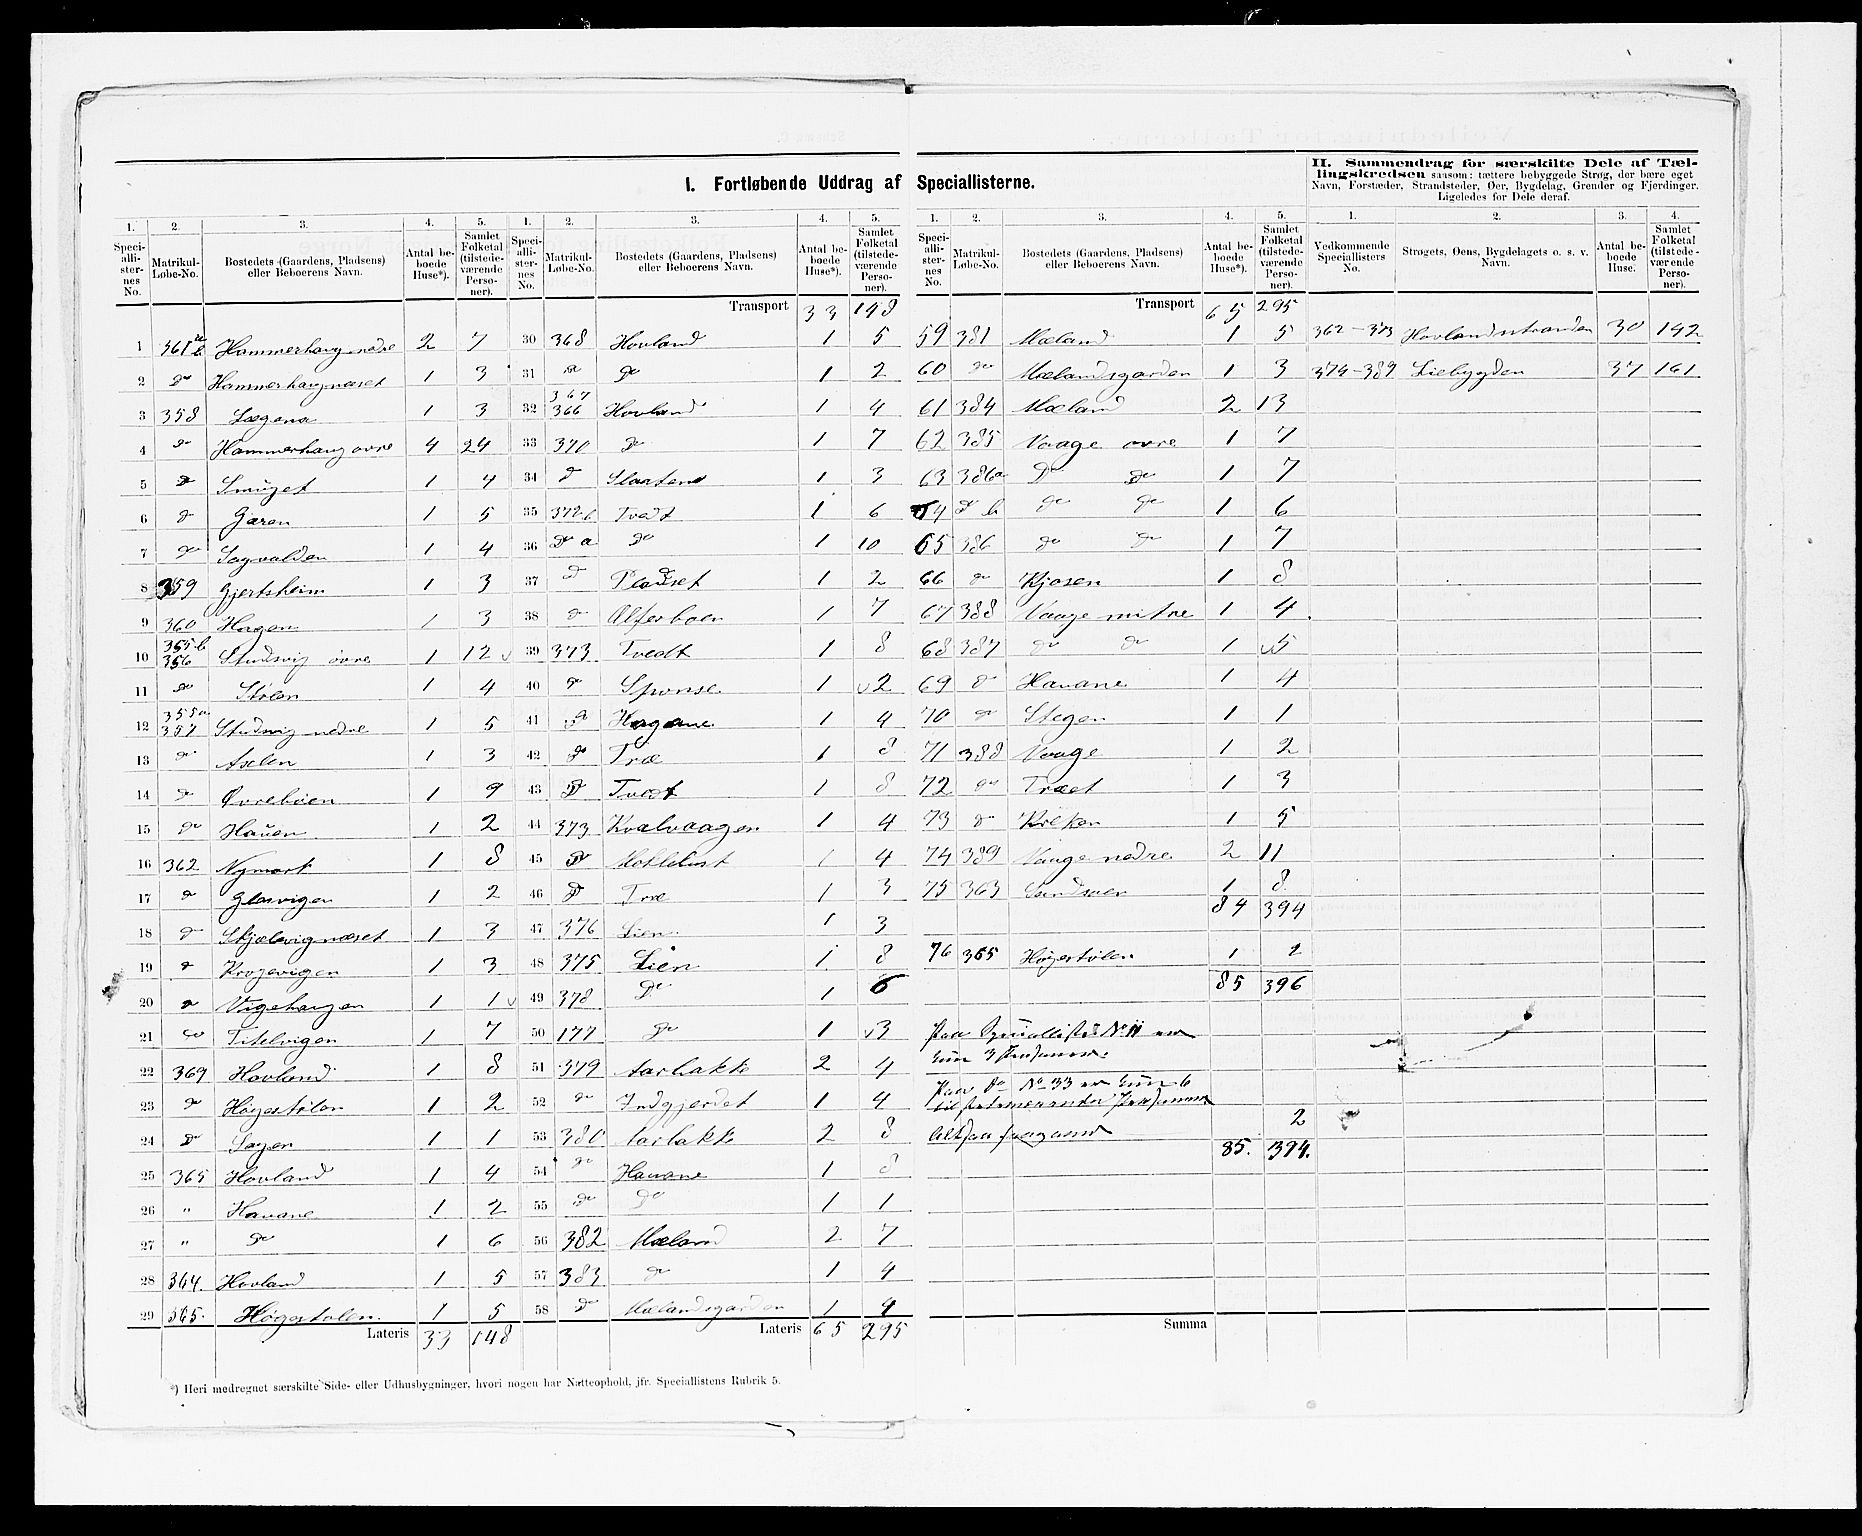 I. Fortløbende Uddrag af Speciallisterne.
II. Sammendrag for særskilte Dele af Tæl-
lingskredsen saasom: tættere bebyggede Strøg, der bære eget
Navn, Forstæder, Strandsteder, Øer, Bygdelag, Grender og Fjerdinger.
Ligeledes for Dele deraf.
1. 2. 3. 4. 5. 1. 2. 3. 4. 5. 1. 2. 3. 4. 5. 1. 2. 3. 4.
Speci-alli-ster-nes No. Matrikul-Løbe-No. Bostedets (Gaardens, Pladsens) eller Beboerens Navn. Antal be-boede Huse*). Samlet Folketal (tilstede-værende Perso-ner).
Speci-alli-ster-nes No. Matrikul-Løbe-No. Bostedets (Gaardens, Pladsens) eller Beboerens Navn. Antal be-boede Huse*). Samlet Folketal (tilstede-værende Perso-ner).
Speci-alli-ster-nes No. Matrikul-Løbe-No. Bostedets (Gaardens, Pladsens) eller Beboerens Navn. Antal be-boede Huse*). Samlet Folketal (tilstede-værende Perso-ner).
Vedkommende Speciallisters No. Strøgets, Øens, Bygdelagets o. s. v. Navn. Antal be-boede Huse. Samlet Folketal (tilstede-værende Perso-ner).
1 361 Hammerhaug nedre 2 7
2 do Hammerhaugnæset 1 3
3 358 Lægena 1 3
4 do Hammerhaug øvre 4 24
5 do Smuget 1 4
6 do Gjæren 1 5
7 do Sagvolden 1 4
8 359 Gjertsheim 1 3
9 360 Hagen 1 3
10 355b 356 Studsvig øvre 1 12
11 do Stølen 1 4
12 355a 357 Studsvig nedre 1 5
13 do Aslen 1 3
14 do Øvrebøen 1 9
15 do Haüen 1 2
16 362 Nymark 1 8
17 do Glasvigen 1 2
18 do Skjælevignæset 1 3
19 do Krogevigen 1 3
20 do Vigehaugen 1 1
21 do Titelvigen 1 7
22 369 Hovland 1 8
23 do Høgestølen 1 2
24 do Sagen 1 1
25 365 Hovland 1 4
26 " Havane 1 2
27 " do 1 6
28 364. Hovland 1 5
29 365. Høgestølen. 1 5
Lateris 33 148
Transport 33 148
30 368 Hovland 1 5
31 do do 1 2
32 367 366 Hovland 1 4
33 370 do 1 7
34 do Slaatene 1 3
35 372 b Tvedt 1 6
36 do a do 1 10
37 do Pladset 1 2
38 do Ølferbøen 1 7
39 373 Tvedt 1 8
40 do Sponse 1 2
41 do Hagane 1 4
42 do Træ 1 8
43 do Tvedt 1 8
44 373 Kvalvaagen 1 4
45 do 1 4
46 do Træ 1 3
47 376 Lien. 1 3
48 375 Lien 1 8
49 378 do 1 6
50 177 do 1 3
51 379 Aarbakke 2 4
52 do Indgjerdet 1 4
53 380 Aarbakke 2 8
54 do Havane 1 8
55 do do 1 1
56 382 Mæland 2 7
57 383 do 1 4
58 do Mælandsgarden 1 4
Lateris 65 295
Transport 65 295
59 381 Mæland 1 5
60 do Mælandsgarden 1 3
61 384 Mæland 2 13
62 385 Vaage øvre 1 7
63 386a do do 1 7
64 do b do do 1 6
65 386 do do 1 7
66 do Kjosen 1 8
67 388 Vaage mitre 1 4
68 387 do do 1 5
69 do Havane 1 4
70 do Stegen 1 1
71 388 Vaage 1 2
72 do Træet 1 3
73 do 1 5
74 389 Vaage nedre 2 11
75 363 1 8
84 394
76 365 Høgestølen 1 2
85 396
Paa Speciallisten No 11 er
kun 3 Personer.
Paa do No 33 er kun 6
tilstedeværende Personer
Altsaa fragaaend 2
85. 394.
Summa
362–373 Hovlandsstranden 30 142
374–389 Liebygden 37 161
*) Heri medregnet særskilte Side- eller Udhusbygninger, hvori nogen har Natteophold, jfr. Speciallistens Rubrik 5.